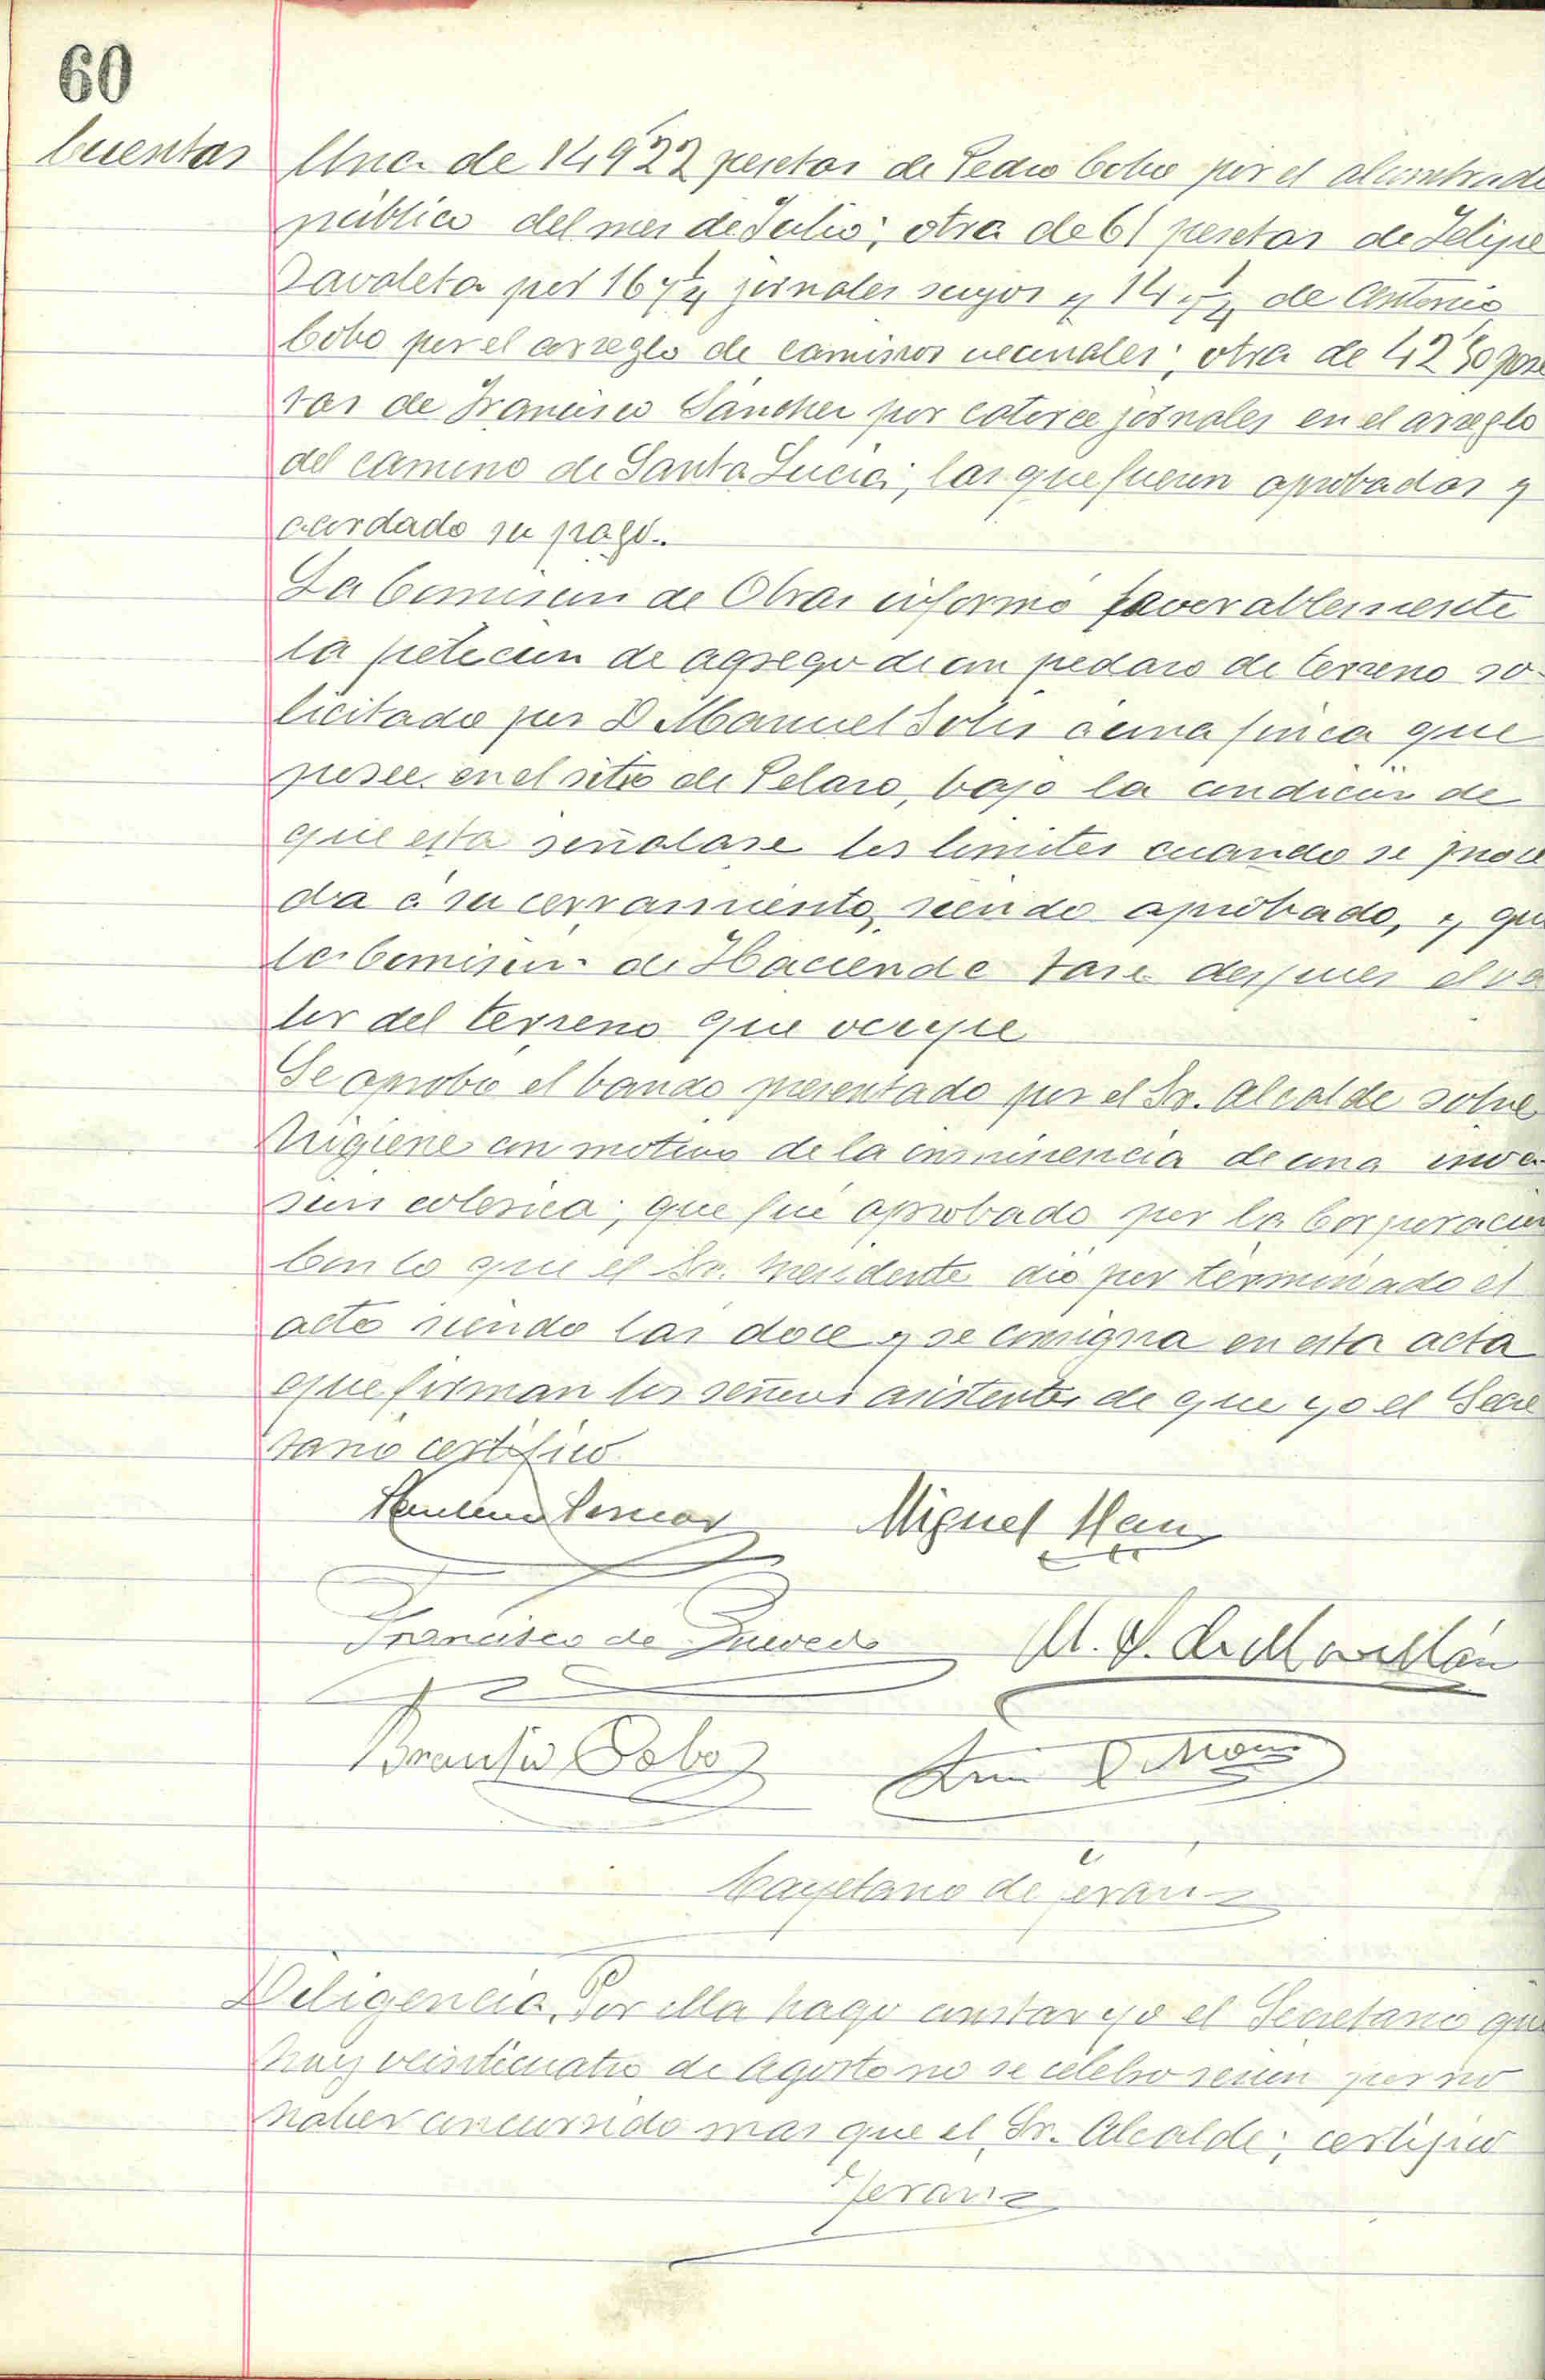 60
Cuentas
Una de 149'22 pesetas de Pedro Cobo por el alumbrado
público del mes de Julio; otra de 61 pesetas de Felipe
Zavaleta por 16 y ½ jornales suyos y 14 y ½ de Antonio
Cobo por el arreglo de caminos vecinales; otra de 42'50 pese
tas de Francisco Sánchez por catorce jornales en el arreglo
del camino de Santa Lucia; las que fueron aprobadas y
acordado su pago.
La Comision de Obras informó favorablemente
la peticion de agrego de un pedazo de terreno so-
licitado por D Manuel Solis á una finca que
posee en el sitio de Pelazo, bajo la condicion de
que esta señalase los limites cuando se proce
da á su cerramiento, siendo aprobado, y que
la Comision de Hacienda tase despues el va
lor del terreno que ocupe
Se aprobó el bando presentado por el Sr. Alcalde sobre
higiene con motivo de la inminencia de una inva
sion colerica; que fué aprobado por la Corporacion
Con lo que el Sr. Presidente dió por terminado el
acto siendo las doce y se consigna en esta acta
que firman los señores asistentes de que yo el Secre
tario certifico.
Miguel
Francisco de Quevedo
M. S. de Movellán
Cobo
Cayetano de Terán
Diligencia. Por ella hago constar yo el Secretario que
hoy veinticuatro de Agosto no se celebro sesion por no
haber concurrido mas que el Sr. Alcalde; certifico
Terán